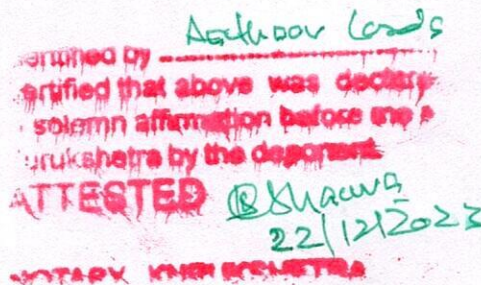 Aadhaar Cards
entified by
ertified that above was declare
solemn affirmation before me
urukshetra by the deponent
ATTESTED
22/12/2023
NOTARY KURUKSHETRA